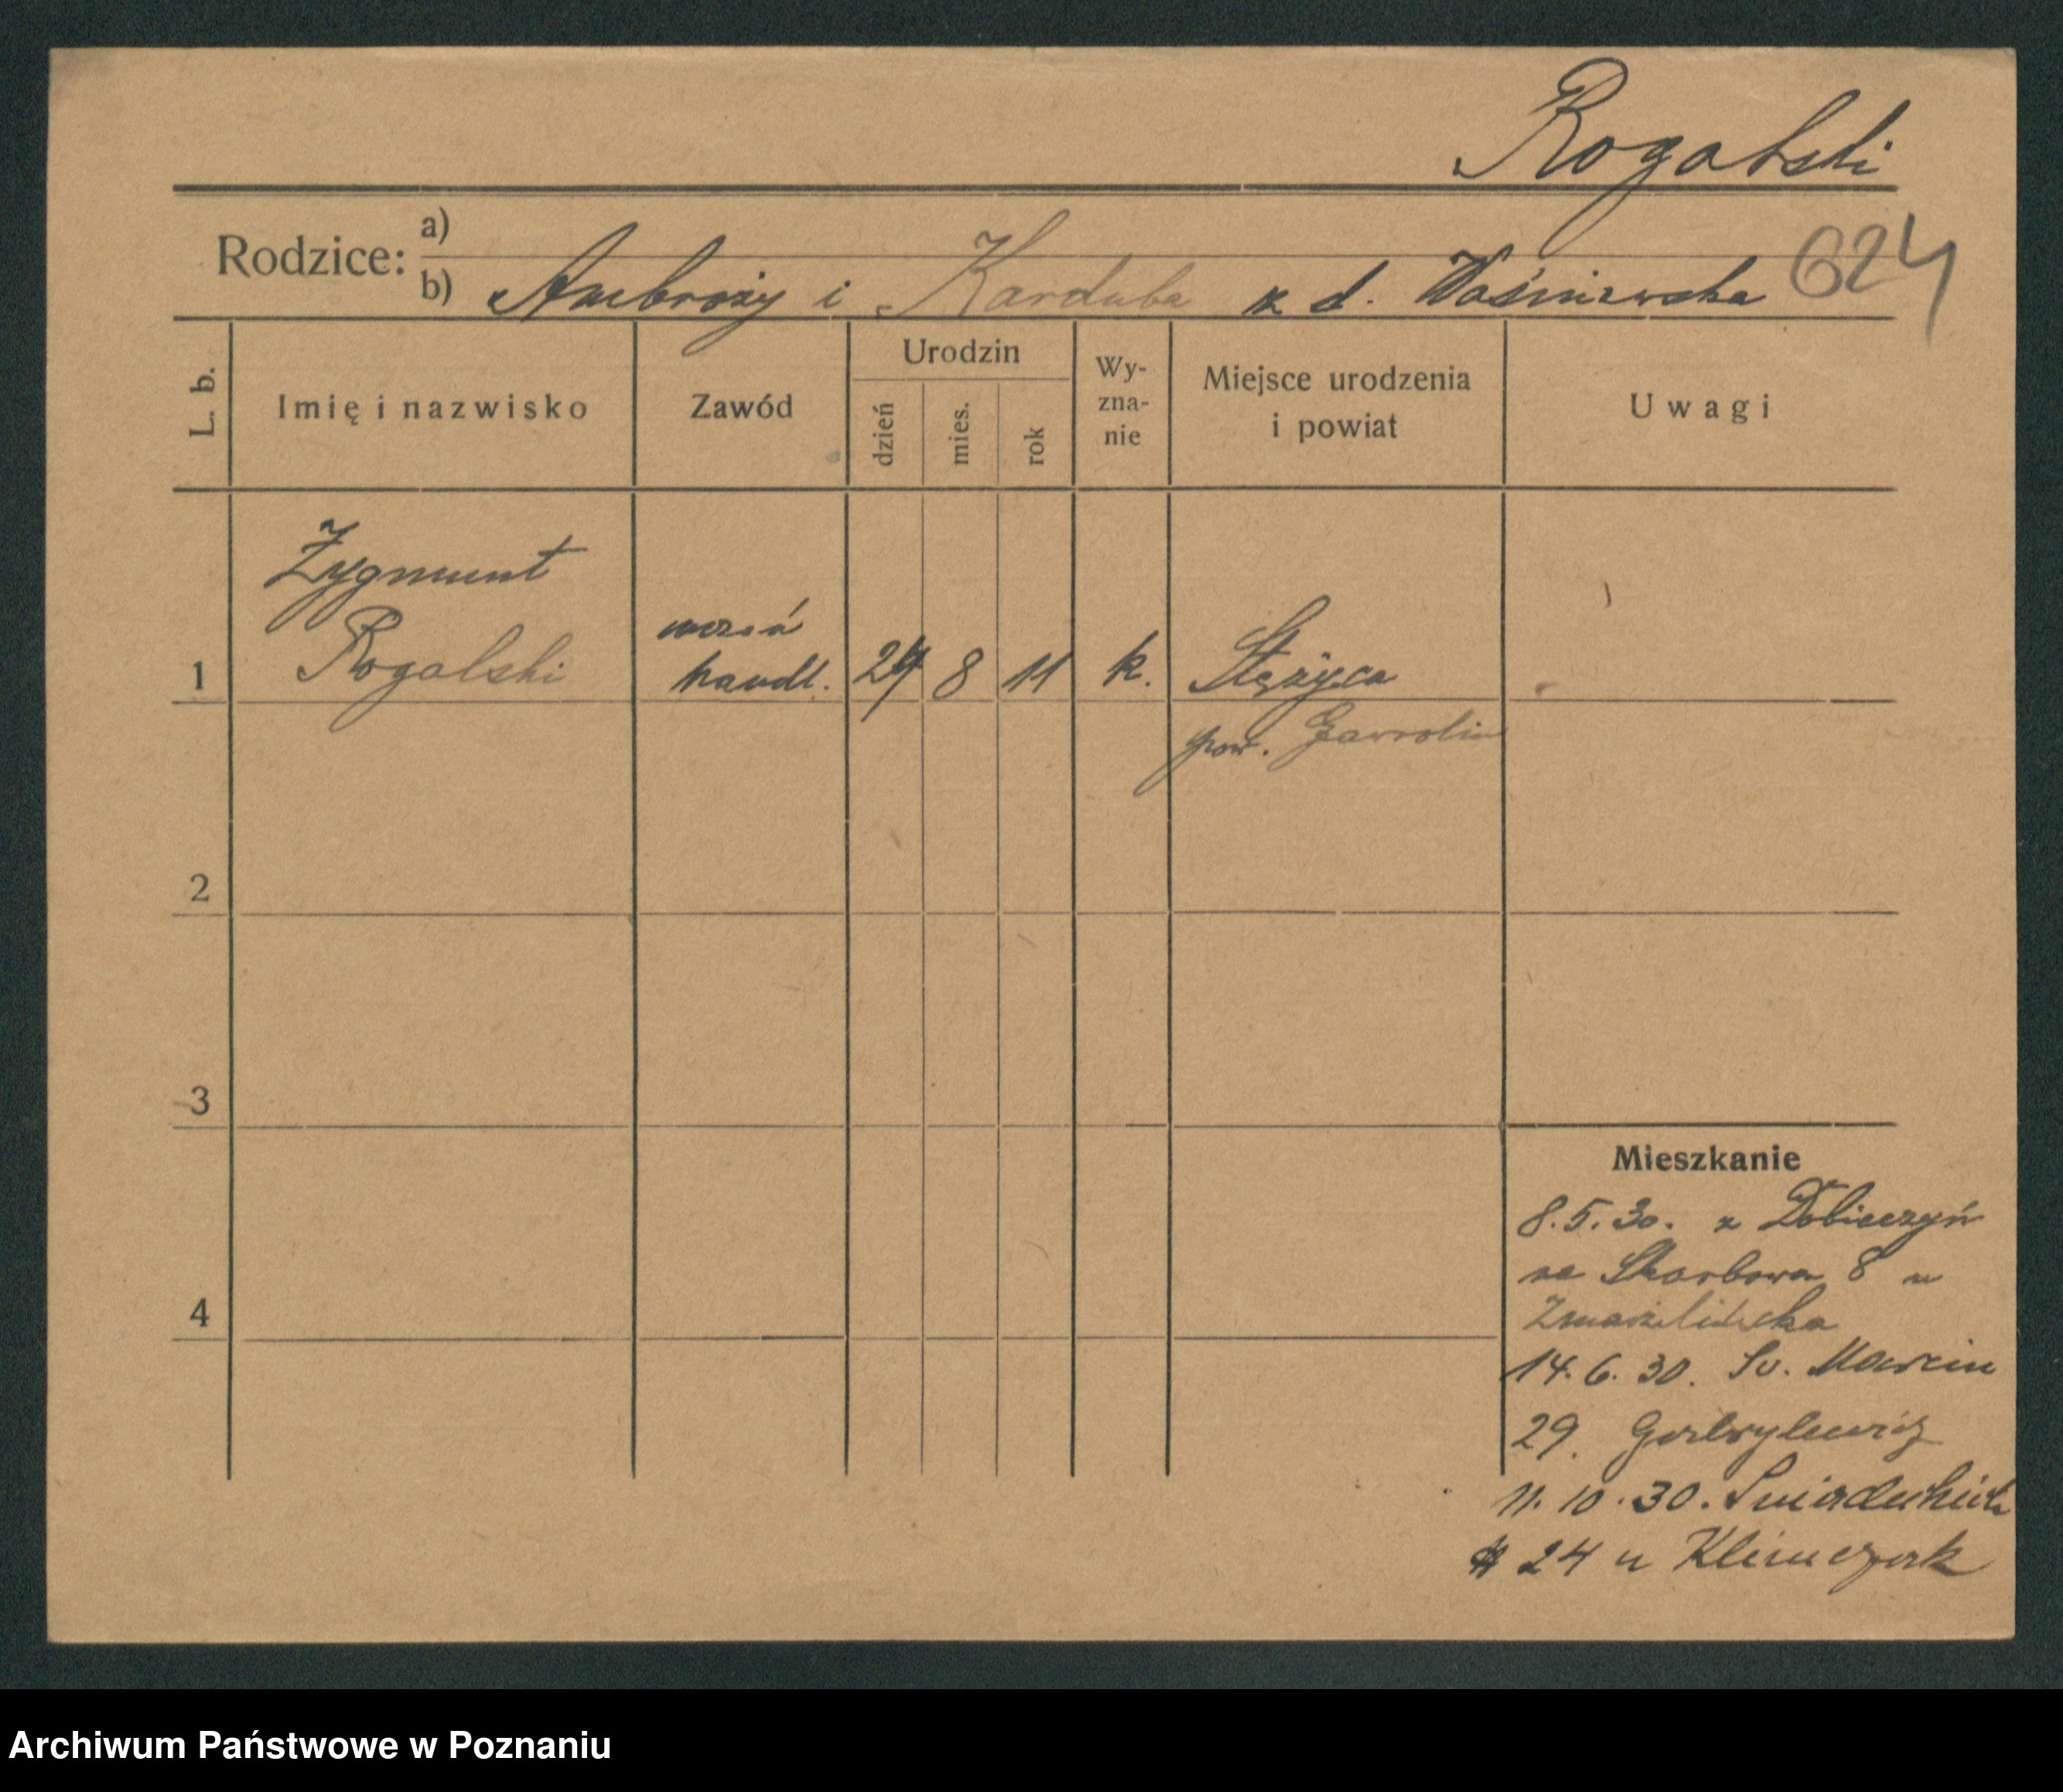 Rogalski
624
Rodzice: a)
b) Ambroży i Kordula z d. Waśniewska
L. b.
Imię i nazwisko
Zawód
Urodzin
dzień
mies.
rok
Wy-
zna-
nie
Miejsce urodzenia
i powiat
Uwagi
Zygmunt
Rogalski
uczeń
handl.
8
11
k.
Stężyca
pow. Garwolin
1
2
3
4
Mieszkanie
8.5.30. z Dobieczyn
na Skarbowa 8 u
14.6.30. Św. Marcin
29.
11.10.30. Śniadeckich
24 u Klimczak
Archiwum Państwowe w Poznaniu